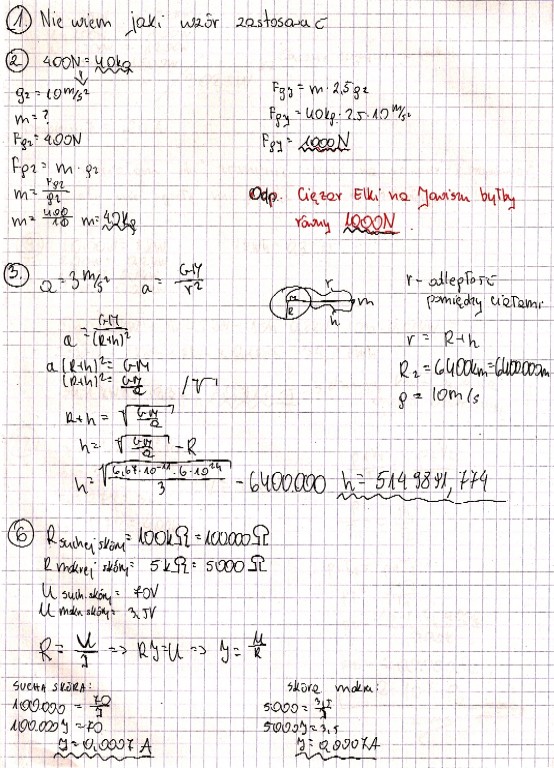 1. Nie wiem jaki wzór zastosować
2. 400N = 40kg
g₂ = 10 m/s²
m = ?
Fg₂ = 400N
Fg₂ = m · g₂
m = Fg₂/g₂
m = 400/10 m = 40kg
Fgy = m · 2,5g₂
Fgy = 40kg · 2,5 · 10 m/s²
Fgy = 1000N
Odp. Ciężar Elki na Jowiszu byłby
równy 1000N.
3. a = 3 m/s² a = GM/r²
a = GM/(R+h)²
a(R+h)² = GM
(R+h)² = GM/a /√
R+h = √(GM/a)
h = √(GM/a) - R
h = √(6,67·10⁻¹¹·6·10²⁴/3) - 6400.000 h = 5149891,774
r
M
R
m
h
r - odległość
pomiędzy ciałami
r = R+h
R₂ = 6400km = 6400.000m
g = 10m/s
6. R suchej skóry = 100kΩ = 100000Ω
R mokrej skóry = 5kΩ = 5000Ω
U such. skóry = 70V
U mokr. skóry = 3,5V
R = U/J => RJ = U => J = U/R
SUCHA SKÓRA:
100.000 = 70/J
100.000J = 70
J = 0,0007 A
skóra mokra:
5000 = 3,5/J
5000J = 3,5
J = 0,0007A